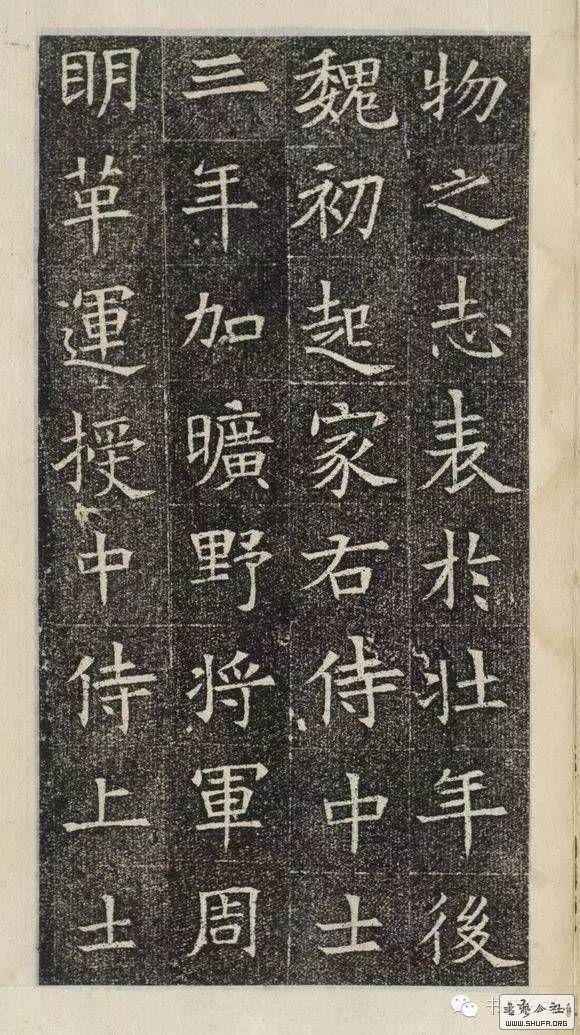 物之志表於壯年後
魏初起家右侍中士
三年加曠野將軍周
明革運授中侍上士
WWW.SHUFA.ORG